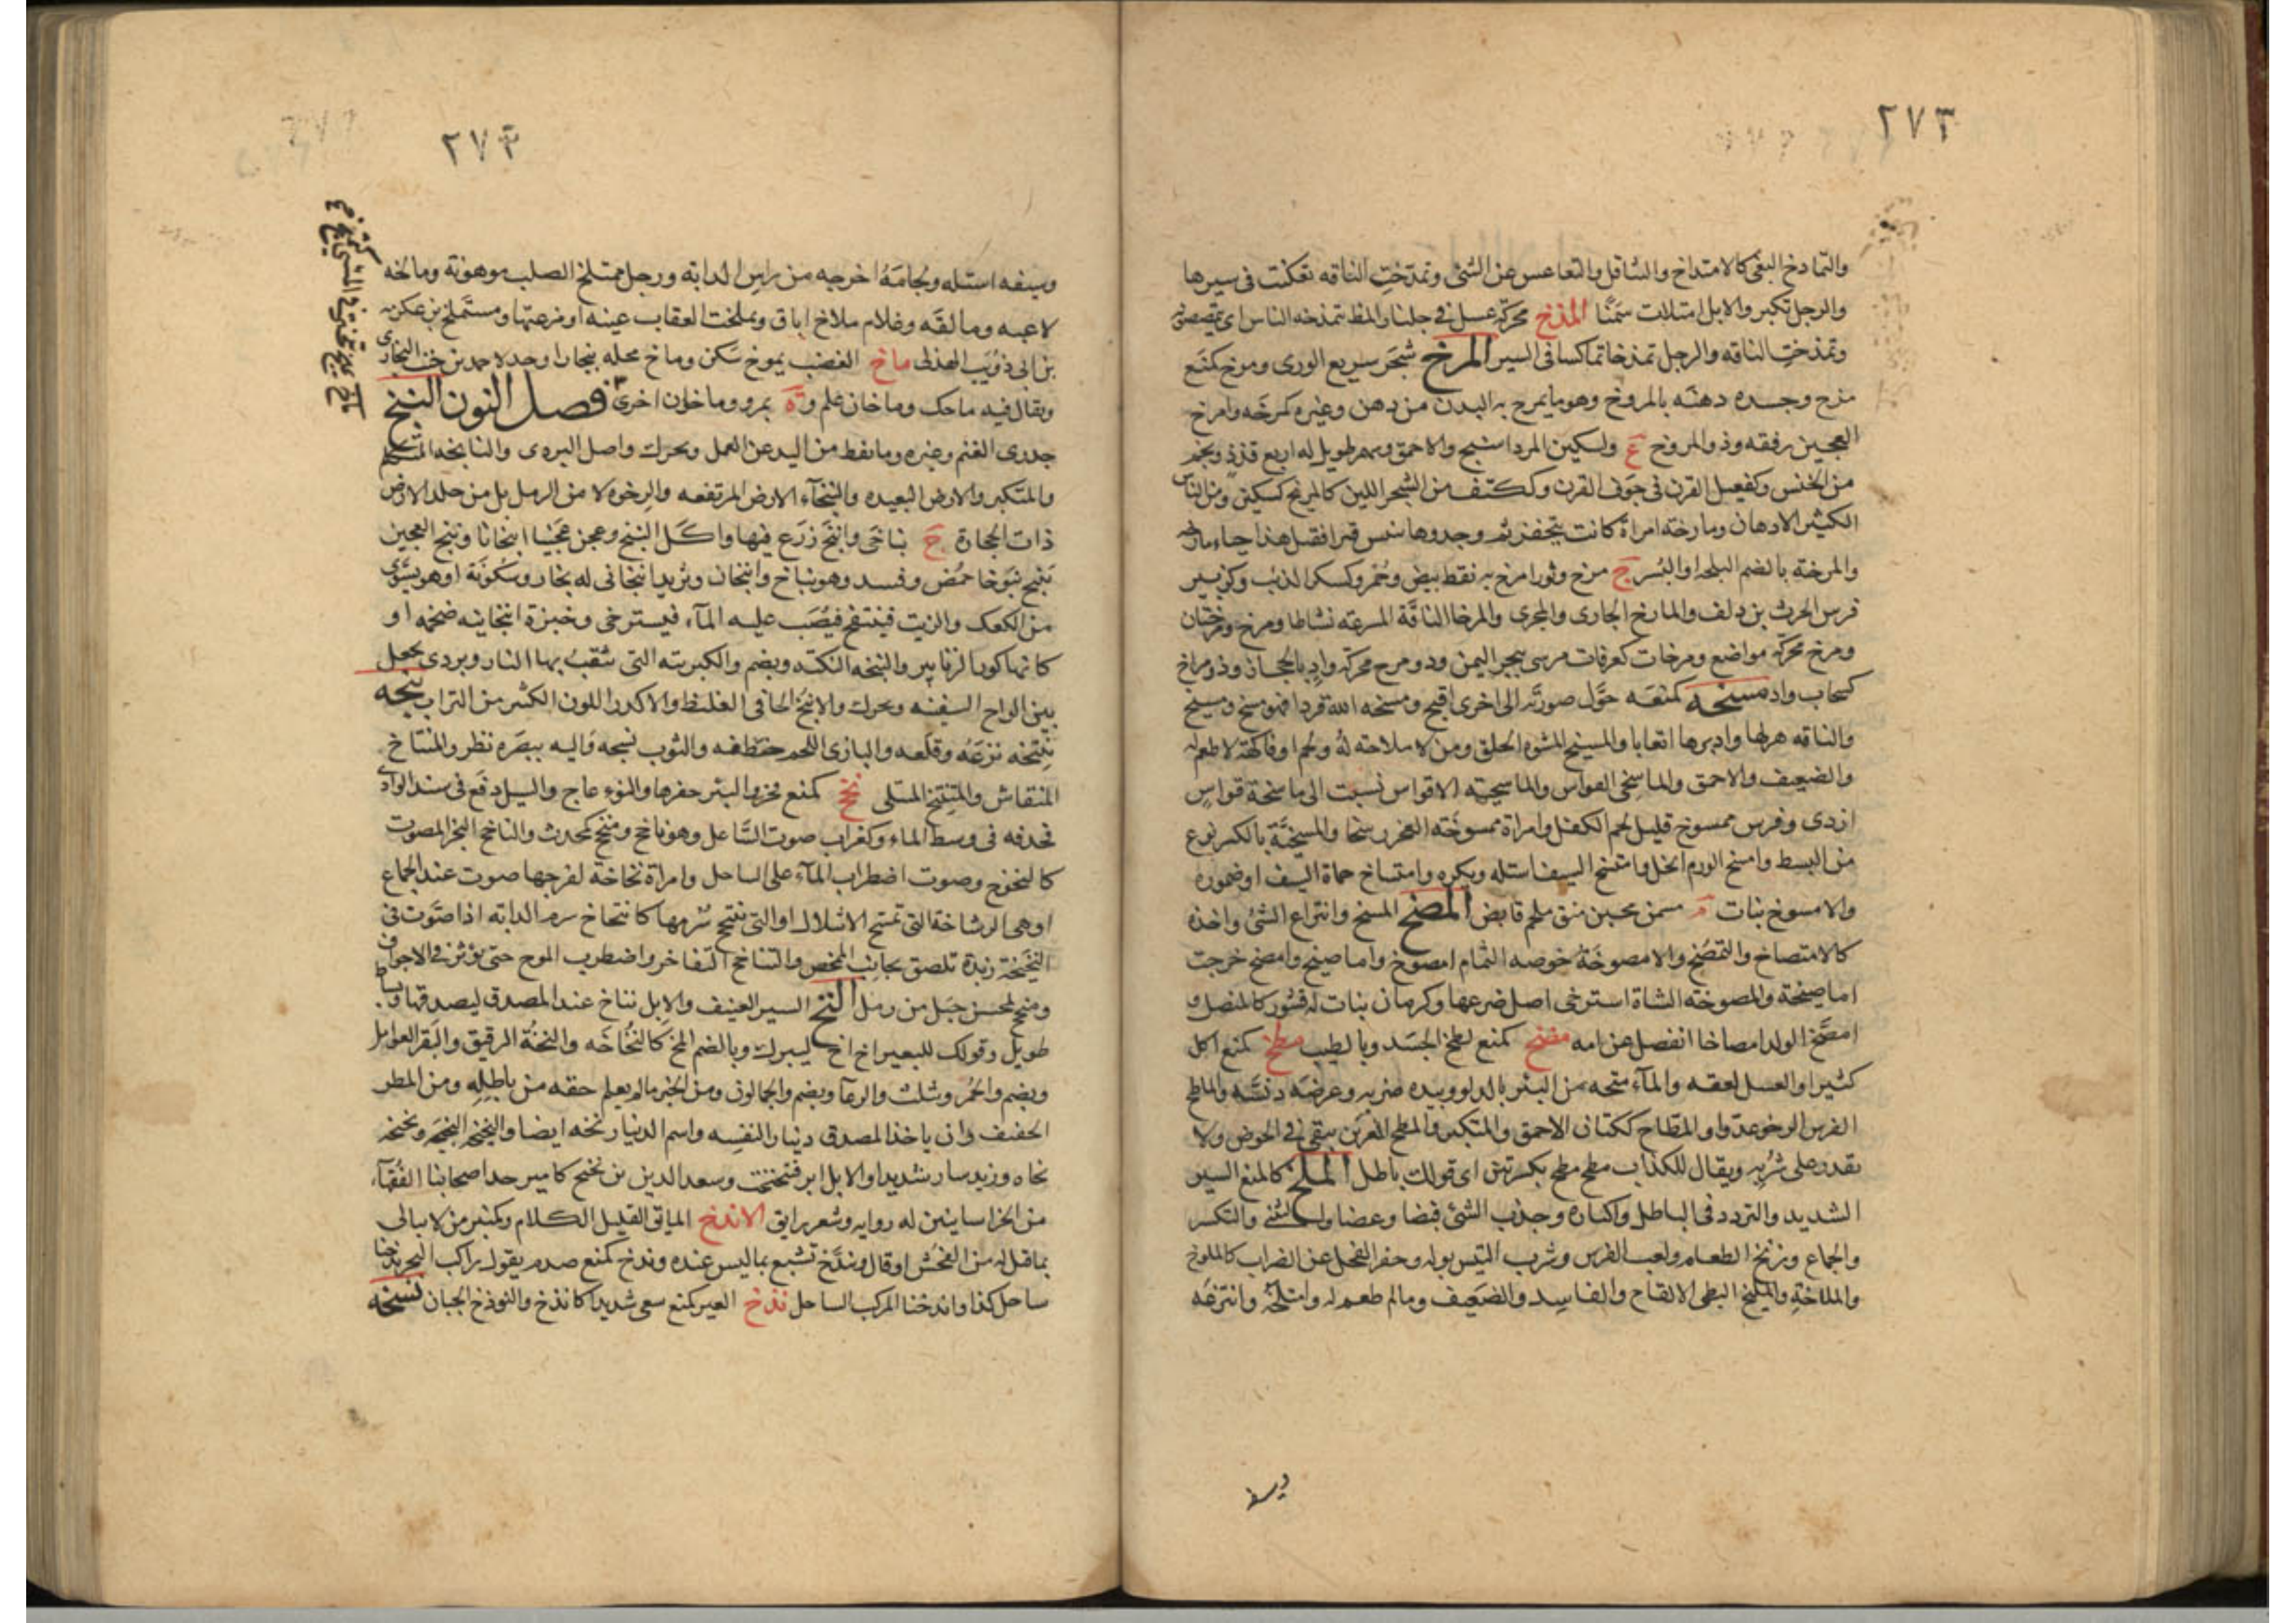 ٢٧٣
والتمادخ البغى كالامتداخ والتثاقل والتقاعس عن الشئ وتمدّخت الناقه تعكنت فى سيرها
والرجل تكبر والابل امتلات سمنًا المذخ محركة عسل فى جلنار المظ تمذخه الناس اى تمصصوه
وتمذخت الناقه والرجل تمذخا تماكسا فى السير المرخ شجر سريع الورى ومرخ كمنع
مزح وجسده دهنه بالمروخ وهو ما يمرخ به البدن من دهن وغيره كمرخه وامرخ
العجين رققه وذو المروخ ع ولسكين المرداسنج والاحمق وسهم طويل له اربع قذذ ونجم
من الخنس وكفعيل القرن فى جوف القرن وككتف من الشجر اللين كالمريخ كسكين ومن الناس
الكثير الادهان ومارخه امراة كانت يتخفر ثم وجدوها تنبش قبرا فقيل هذا حياء مارخه
والمرخة بالضم البلحه او البسر ج مرخ وثور امرخ به نقط بيض وحمر وكسكر الذئب وكزبير
فرس الحرث بن دلف والمارخ الجارى والمجرى والمرخا الناقة المسرعة نشاطا ومرخ ومرختان
ومرخ محركة مواضع ومرخات كعرفات مرسى ببحر اليمن وذو مرخ محركة واد بالحجاز وذو مراخ
كسحاب واد مسخه كمنعه حوّل صورته الى اخرى اقبح ومسخه الله قردا فهو مسخ ومسيخ
والناقه هزلها وادبرها اتعابا والمسيخ المشوه الخلق ومن لا ملاحته له ولحم او فاكهة لا طعم له
والضعيف والاحمق والماسخى القواس والماسخية الاقواس نسبت الى ماسخة قواس
ازدى وفرس ممسوخ قليل لحم الكفل وامراة ممسوخه العجز رسحا والمسيخة بالكسر نوع
من البسط وامسخ الورم انحل وامتسخ السيف استله ويكره وامتساخ حماة السيف او ضموره
والامسوخ بنات م مسمن محبن منق ملحم قابض المصخ المسخ وانتزاع الشئ واخذه
كالامتصاخ والتمصخ والامصوخة خوصه الثمام امصوخ واماصيخ وامصخ خرجت
اماصيخة والمصوخه الشاة استرخى اصل ضرعها وكرمان بنات له قشور كالمنصل و
امصّخ الولد امصاخا انفصل عن امه مضخ كمنع لطخ الجسد وبالطيب مطخ كمنع اكل
كثيرا والعسل لعقه والماء متحه من البئر بالدلو وبيده ضربه وعرضه دنسه والماطخ
الفرس الرخو عدوا والمطّاخ ككتان الاحمق والمتكبر والمطخ الغرين يبقى فى الحوض ولا
يقدر على شربه ويقال للكذاب مطخ مطخ بكسرتين اى قولك باطل الملخ كالمنع السير
الشديد والتردد فى الباطل واكثاره وجذب الشئ قبضا وعضا والتثنى والتكسر
والجماع وزنخ الطعام ولعب الفرس وشرب التيس بوله وحفر الفحل عن الضراب كالملوخ
والملاخة والمليخ البطى الالقاح والفاسد والضعيف ومالم طعم له وامتلخه وانتزعه
وسيفه
٢٧٣
وسيفه استله ولجامه اخرجه من راس الدابه ورجل ممتلخ الصلب موهونه ومالخه
لاعبه ومالقه وغلام ملاخ اباق وتملخت العقاب عينه او نزعتها ومستملخ بن عكرمه
بن ابى ذويب الهذلى ماخ الغضب يموخ سكن وماخ محله ببخارا وجد لاحمد بن خنب البخارى
ويقال فيه ماحك وماخان علم و ة بمرو وماخان اخرى فصل النون النبخ
جدرى الغنم وغيره وما نفط من اليد عن العمل ويحرك واصل البردى والنابخه المتكلم
والمتكبر والارض البعيده والنبخآء الارض المرتفعه والرخوه لا من الرمل بل من جلد الارض
ذات الحجارة ج نباخى وانبخ زرع فيها واكل النبخ وعجن عجينا انبخانا ونبخ العجين
ينبخ نبوخا حمض وفسد وهو نباخ وانبخان وثريد انبخانى له بخار وسخونة او هو يسوى
من الكعك والزيت فينتفخ فيصب عليه الماء فيسترخى وخبزة انبخانيه ضخمه او
كانها كور الزنابير والنبخه النكته ويضم والكبريته التى تثقب بها النار وبردى يجعل
بين الواح السفينه ويحرك والانبخ الجافى الغليظ والاكدر اللون الكثير من التراب نتخه
ينتخه نزعه وقلعه والبازى اللحم خطفه والثوب نسجه واليه ببصره نظر والمنتاخ
المنقاش والمتنتخ المتلى نجخ كمنع فخر والبئر حفرها والنوء هاج والسيل دفع فى سند الوادى
فحدفه فى وسط الماء وكغراب صوت الساعل وهو ناجخ ومنجخ كمحدث والناجخ البحر المصوت
كالنجوخ وصوت اضطراب المآء على الساحل وامراة نجاخة لفرجها صوت عند الجماع
او هى الرشاخة التى تمسح الاشلال او التى ينتجخ سرمها كانتجاخ سرم الدابه اذا صوت فى
النجيخة زبدة تلصق بجانب المخض والتناجخ التفاخر واضطرب الموج حتى يؤثر فى الاجراف
ومنجخ لمحسن جبل من رمل النخ السير العنيف والابل تناخ عند المصدق ليصدقها وبساط
طويل وقولك للبعير اخ اخ ليبرك وبالضم المخ كالنخاخه والنخّة الرقيق والبقر العوامل
ويضم والحمر ويثلث والرعآ ويضم والجمالون ومن الخبر مالم يعلم حقه من باطله ومن المطر
الخفيف وان ياخذ المصدق دينارا لنفسه واسم الدنيار نخه ايضا والنخيخه النجخه ونخنخه
نخاه وزيد سار شديدا والابل ابر فتنخنخت وسعد الدين بن نخيخ كامير حد اصحابنا الفقهآء
من الخراسانيين له روايه وشعر رايق الاندخ المايق القليل الكلام وكمنبر من لا يبالى
بما قيل له من الفحش او قال وتندّخ تشبع بما ليس عنده وندخ كمنع صدم يقول راكب البحر ندخنا
ساحل كذا واندخنا المركب الساحل نذخ العير كمنع سعى شديدا كانذخ والنوذخ الجبان نسخه